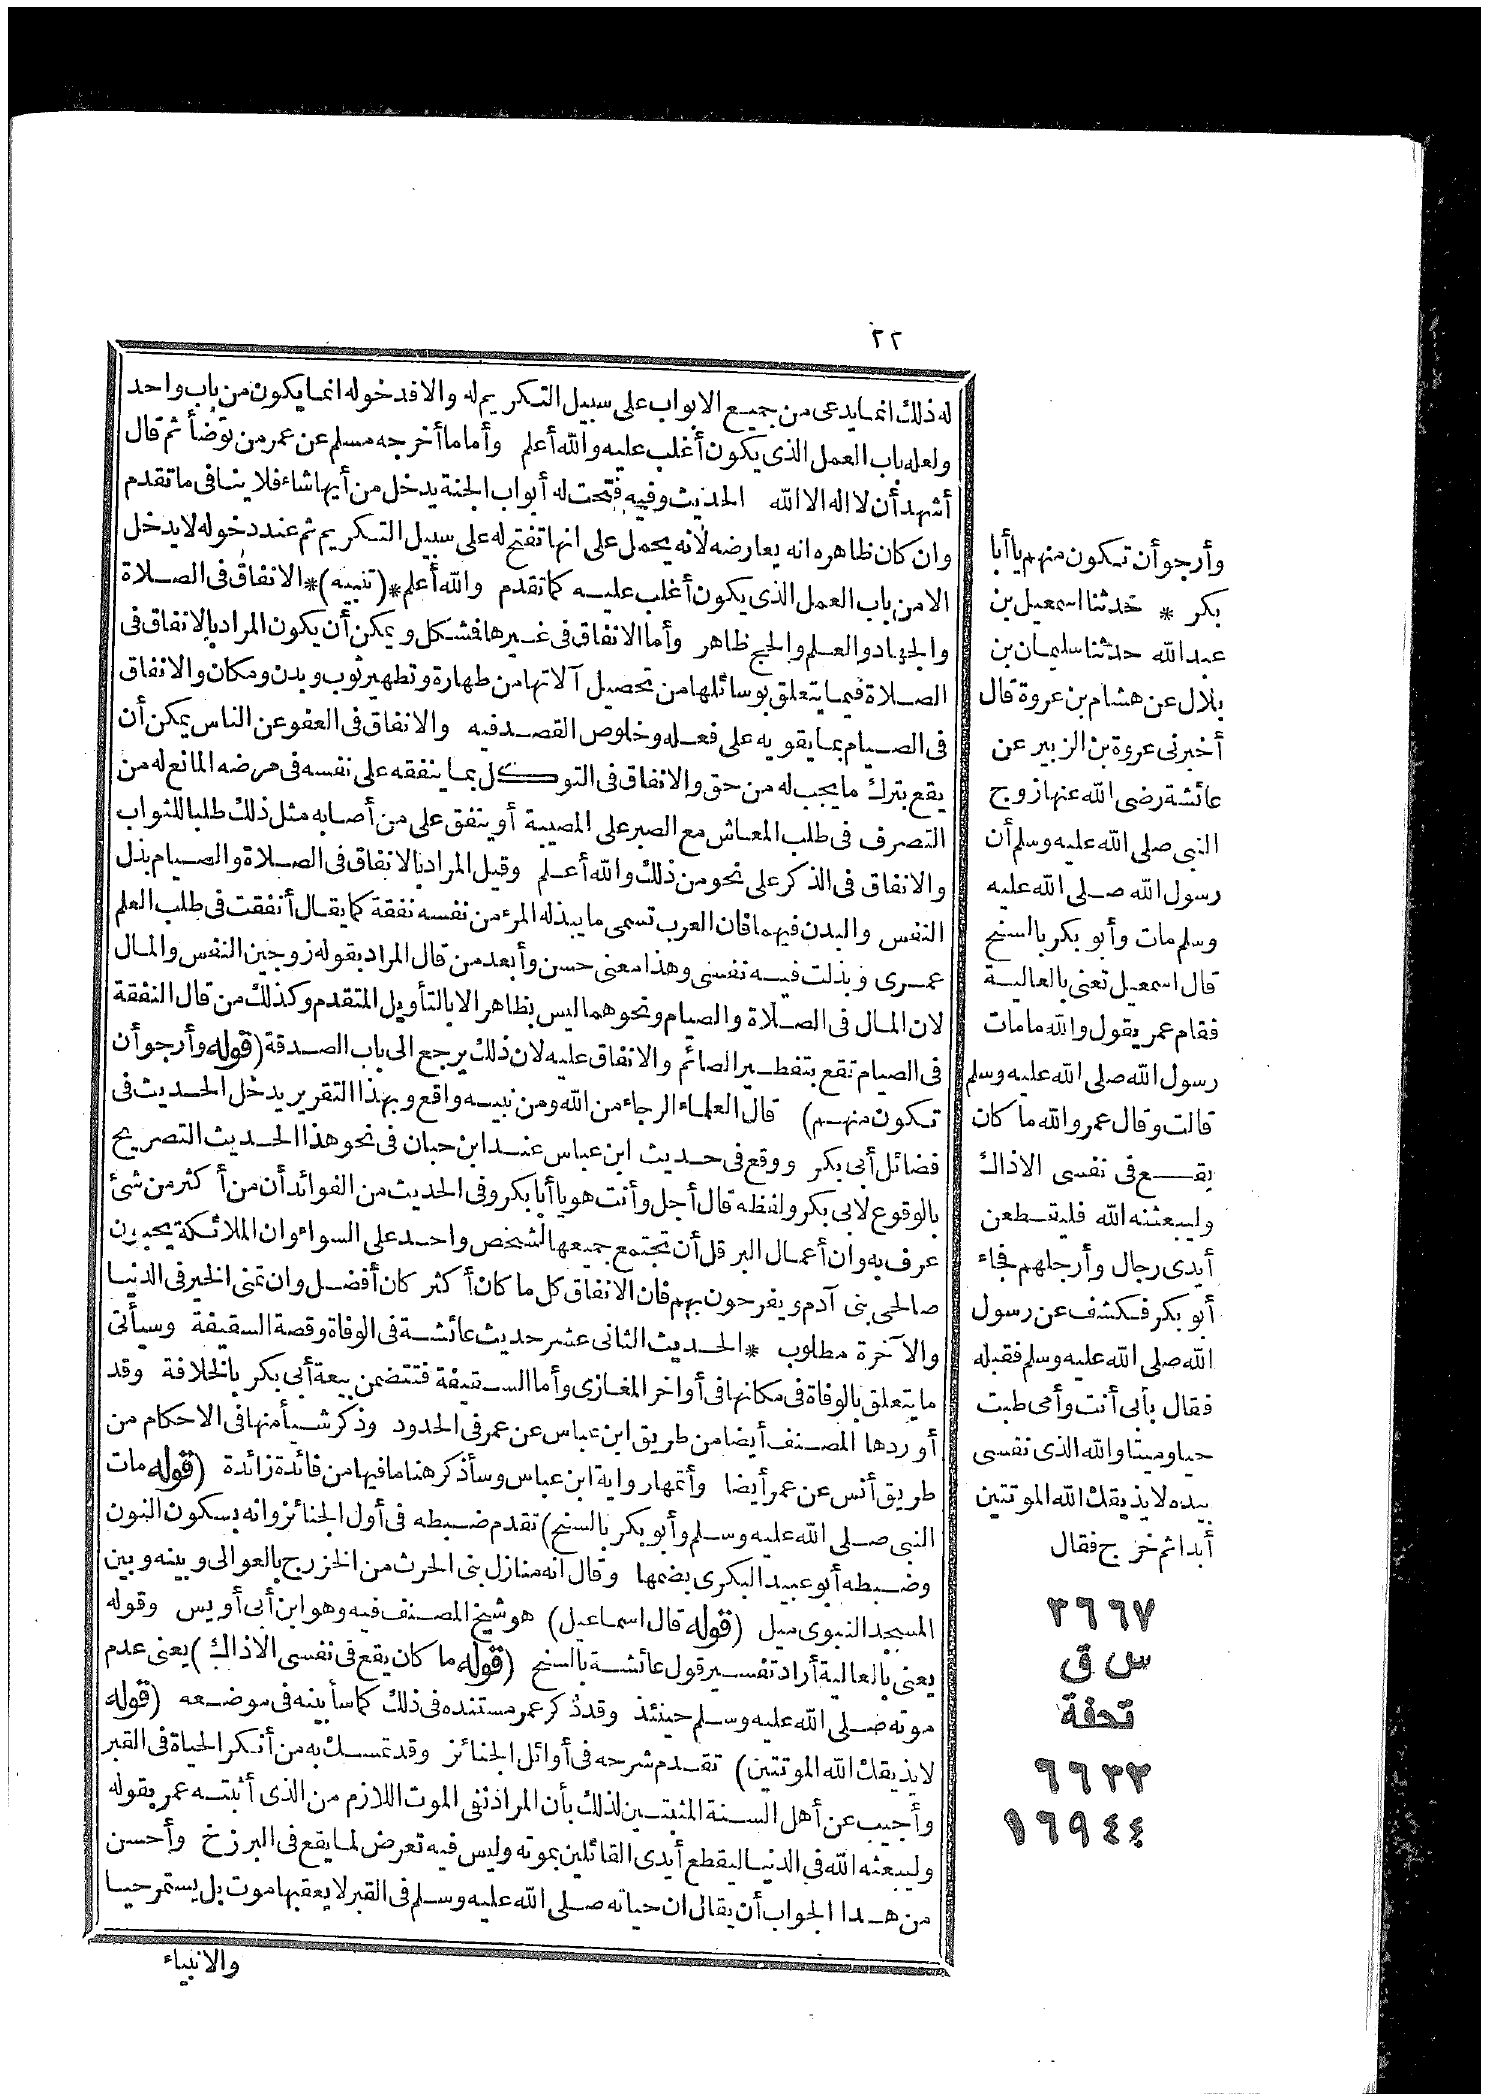 ٢٢
له ذلك انما يدعى من جميع الابواب على سبيل التكريم له والا فدخوله انما يكون من باب واحد
ولعله باب العمل الذى يكون أغلب عليه والله أعلم وأما ما أخرجه مسلم عن عمر من توضأ ثم قال
أشهد أن لا اله الا الله الحديث وفيه فتحت له أبواب الجنة يدخل من أيها شاء فلا ينافى ما تقدم
وان كان ظاهره انه يعارضه لانه يحمل على انها تفتح له على سبيل التكريم ثم عند دخوله لا يدخل
الا من باب العمل الذى يكون أغلب عليه كما تقدم والله أعلم *(تنبيه)* الانفاق فى الصلاة
والجهاد والعلم والحج ظاهر وأما الانفاق فى غيرها فمشكل ويمكن أن يكون المراد بالانفاق فى
الصلاة فيما يتعلق بوسائلها من تحصيل آلاتها من طهارة وتطهير ثوب وبدن ومكان والانفاق
فى الصيام بما يقويه على فعله وخلوص القصد فيه والانفاق فى العفو عن الناس يمكن أن
يقع بترك ما يجب له من حق والانفاق فى التوكل بما ينفقه على نفسه فى مرضه المانع له من
التصرف فى طلب المعاش مع الصبر على المصيبة أو ينفق على من أصابه مثل ذلك طلبا للثواب
والانفاق فى الذكر على نحو من ذلك والله أعلم وقيل المراد بالانفاق فى الصلاة والصيام بذل
النفس والبدن فيهما فان العرب تسمى ما يبذله المرء من نفسه نفقة كما يقال أنفقت فى طلب العلم
عمرى وبذلت فيه نفسى وهذا معنى حسن وأبعد من قال المراد بقوله زوجين النفس والمال
لان المال فى الصلاة والصيام ونحوهما ليس بظاهر الا بالتأويل المتقدم وكذلك من قال النفقة
فى الصيام تقع بتفطير الصائم والانفاق عليه لان ذلك يرجع الى باب الصدقة (قوله وأرجو أن
تكون منهم) قال العلماء الرجاء من الله ومن نبيه واقع وبهذا التقرير يدخل الحديث فى
فضائل أبى بكر ووقع فى حديث ابن عباس عند ابن حبان فى نحو هذا الحديث التصريح
بالوقوع لابى بكر ولفظه قال أجل وأنت هو يا أبا بكر وفى الحديث من الفوائد أن من أكثر من شئ
عرف به وان أعمال البر قل أن تجتمع جميعها لشخص واحد على السواء وان الملائكة يحبون
صالحى بنى آدم ويفرحون بهم فان الانفاق كل ما كان أكثر كان أفضل وان تمنى الخير فى الدنيا
والآخرة مطلوب * الحديث الثانى عشر حديث عائشة فى الوفاة وقصة السقيفة وسيأتى
ما يتعلق بالوفاة فى مكانها فى أواخر المغازى وأما السقيفة فتتضمن بيعة أبى بكر بالخلافة وقد
أوردها المصنف أيضا من طريق ابن عباس عن عمر فى الحدود وذكر شيأ منها فى الاحكام من
طريق أنس عن عمر أيضا وأتمها رواية ابن عباس وسأذكر هنا ما فيها من فائدة زائدة (قوله مات
النبى صلى الله عليه وسلم وأبو بكر بالسنح) تقدم ضبطه فى أول الجنائز وانه بسكون النون
وضبطه أبو عبيد البكرى بضمها وقال انه منازل بنى الحرث من الخزرج بالعوالى وبينه وبين
المسجد النبوى ميل (قوله قال اسماعيل) هو شيخ المصنف فيه وهو ابن أبى أويس وقوله
يعنى بالعالية أراد تفسير قول عائشة بالسنح (قوله ما كان يقع فى نفسى الا ذاك) يعنى عدم
موته صلى الله عليه وسلم حينئذ وقد ذكر عمر مستنده فى ذلك كما سأبينه فى موضعه (قوله
لا يذيقك الله الموتتين) تقدم شرحه فى أوائل الجنائز وقد تمسك به من أنكر الحياة فى القبر
وأجيب عن أهل السنة المثبتين لذلك بأن المراد نفى الموت اللازم من الذى أثبته عمر بقوله
وليبعثه الله فى الدنيا ليقطع أيدى القائلين بموته وليس فيه تعرض لما يقع فى البرزخ وأحسن
من هذا الجواب أن يقال ان حياته صلى الله عليه وسلم فى القبر لا يعقبها موت بل يستمر حيا
والانبياء
وأرجو أن تكون منهم يا أبا
بكر * حدثنا اسمعيل بن
عبد الله حدثنا سليمان بن
بلال عن هشام بن عروة قال
أخبرنى عروة بن الزبير عن
عائشة رضى الله عنها زوج
النبى صلى الله عليه وسلم أن
رسول الله صلى الله عليه
وسلم مات وأبو بكر بالسنح
قال اسمعيل تعنى بالعالية
فقام عمر يقول والله ما مات
رسول الله صلى الله عليه وسلم
قالت وقال عمر والله ما كان
يقع فى نفسى الا ذاك
وليبعثنه الله فليقطعن
أيدى رجال وأرجلهم فجاء
أبو بكر فكشف عن رسول
الله صلى الله عليه وسلم فقبله
فقال بأبى أنت وأمى طبت
حيا وميتا والله الذى نفسى
بيده لا يذيقك الله الموتتين
أبدا ثم خرج فقال
٣٦٦٧
س ق
تحفة
٦٦٣٢
١٦٩٤٤